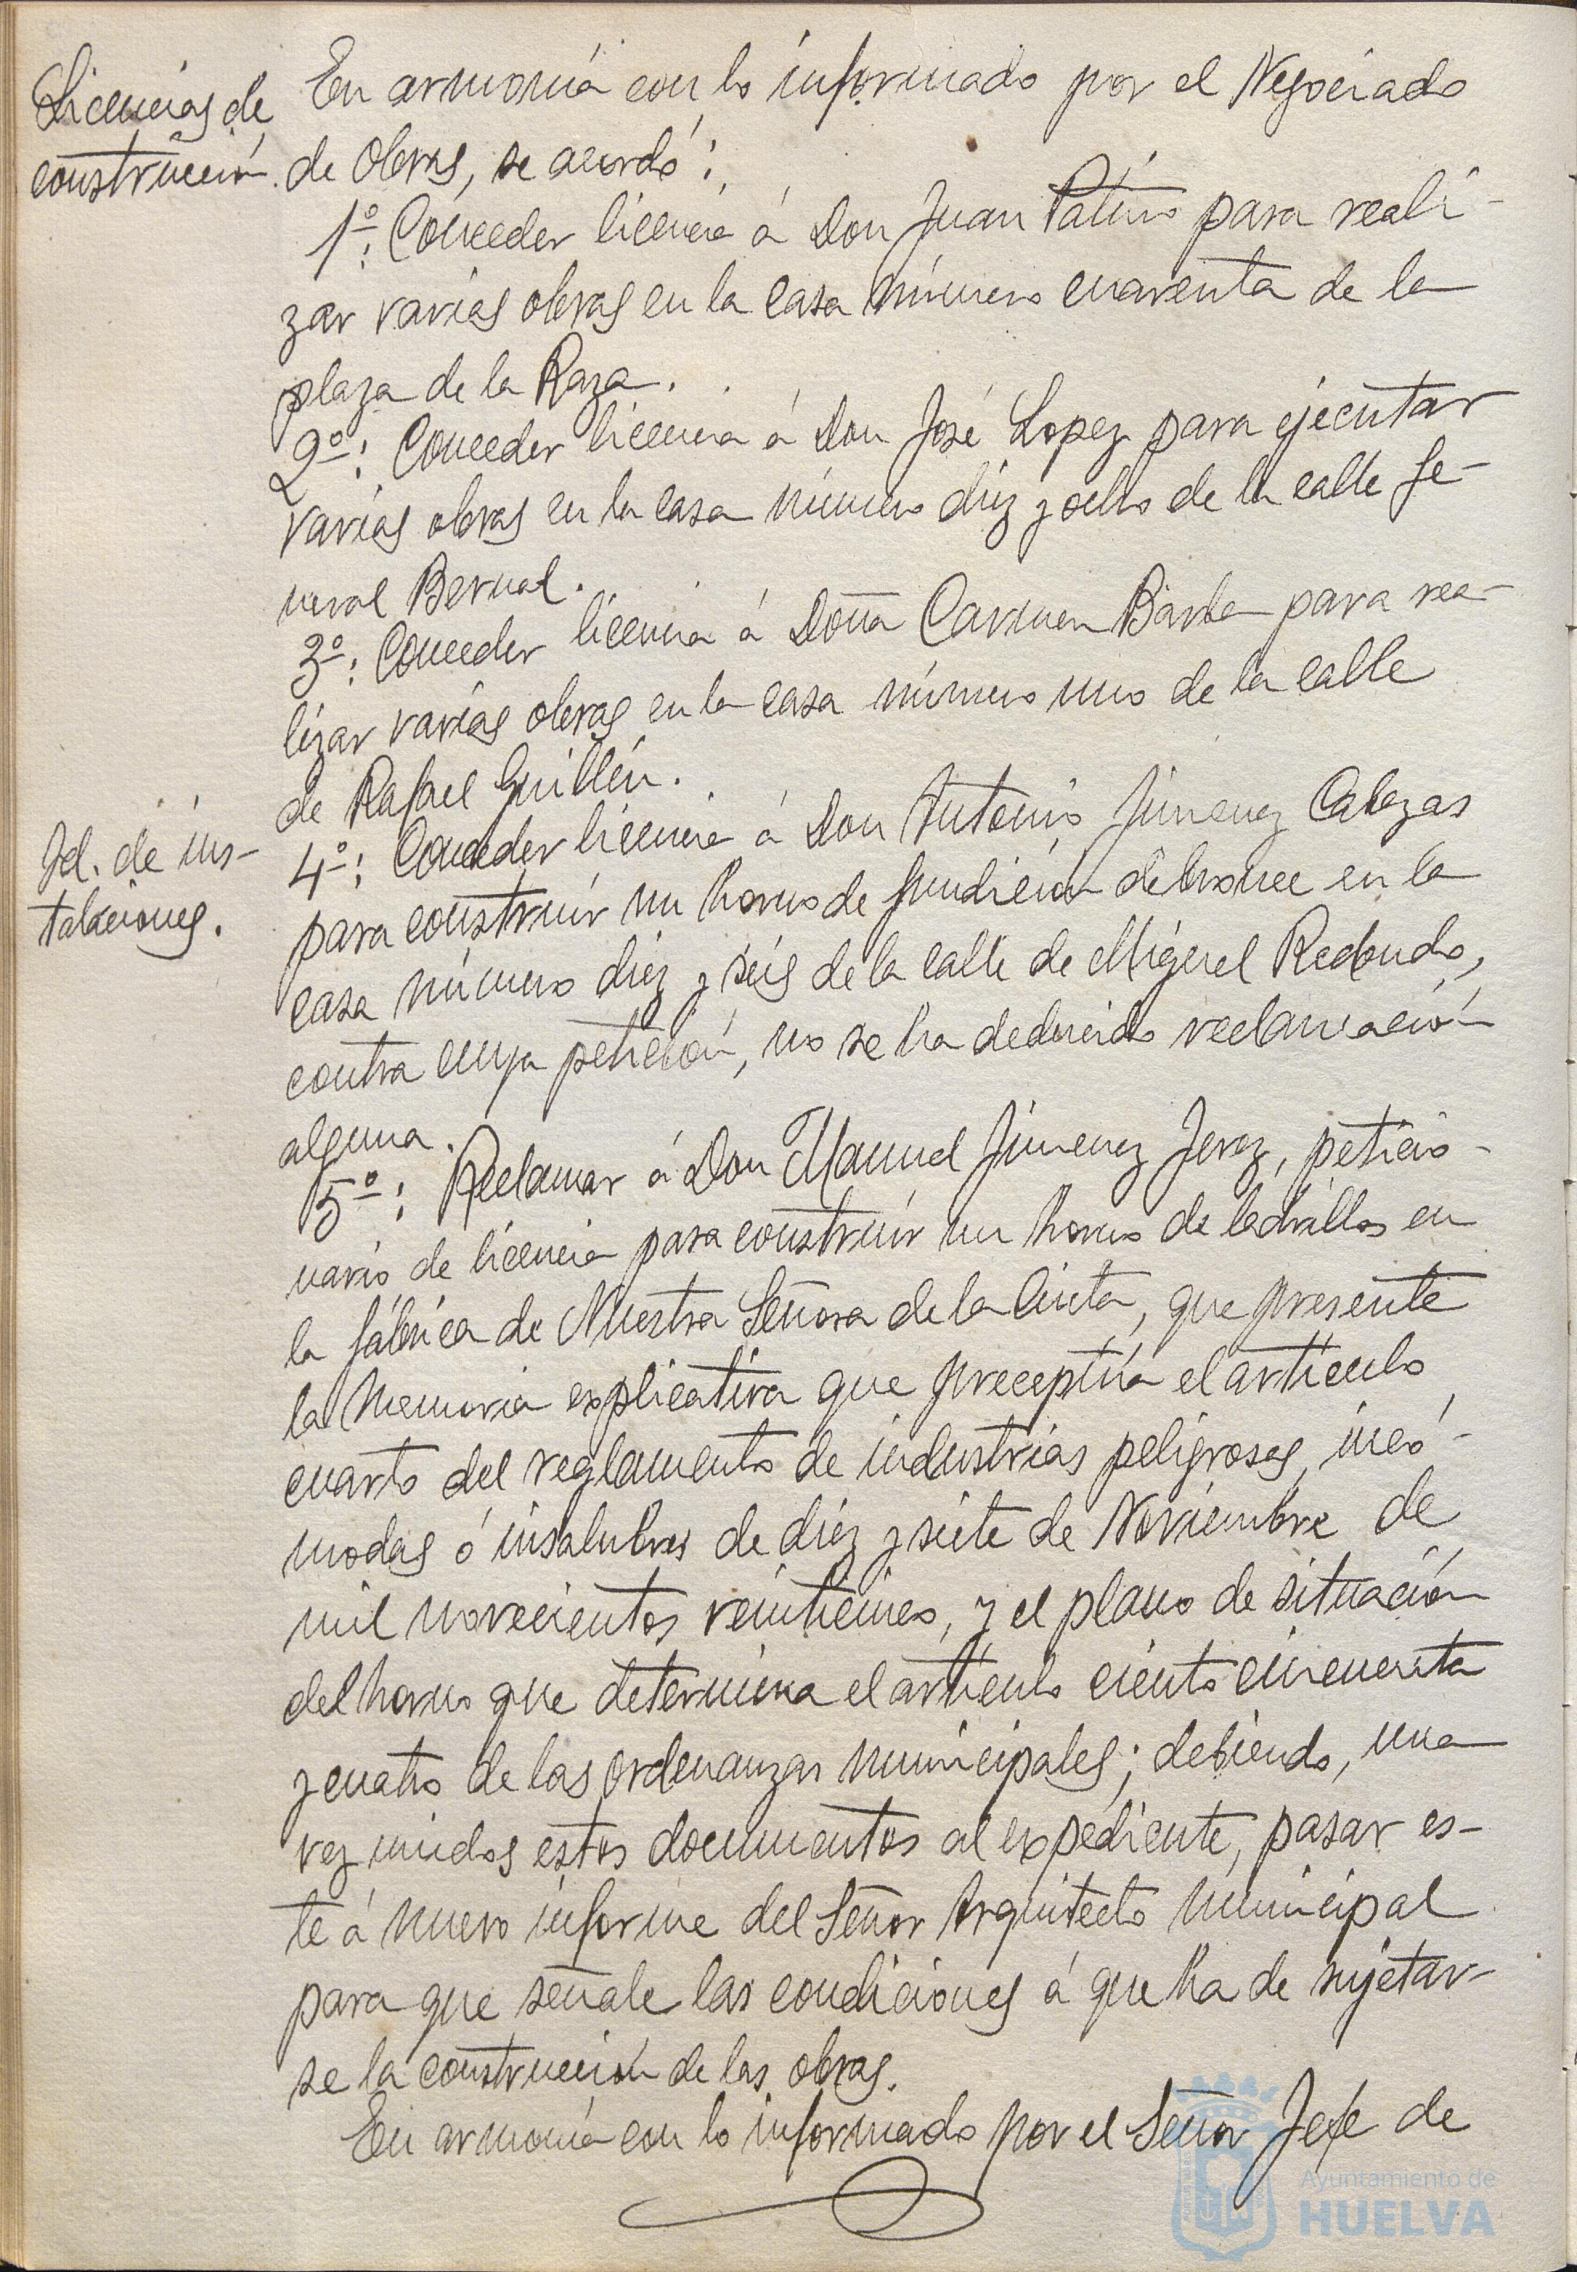 Licencias de
construcción.
En armonía con lo informado por el Negociado
de Obras, se acordó:
1º: Conceder licencia á Don Juan Patiño para reali-
zar varias obras en la casa número cuarenta de la
plaza de la Raza.
2º: Conceder licencia á Don José Lopez para ejecutar
varias obras en la casa número diez y ocho de la calle Ge-
neral Bernal.
3º: Conceder licencia á Doña Carmen Barba para rea-
lizar varias obras en la casa número uno de la calle
de Rafael Guillén.
Id. de ins-
talaciones.
4º: Conceder licencia á Don Antonio Jimenez Cabezas
para construir un horno de fundición de bronce en la
casa número diez y seis de la calle de Miguel Redondo,
contra cuya petición, no se ha deducido reclamación
alguna.
5º: Reclamar á Don Manuel Jimenez Jerez, peticio-
nario de licencia para construir un horno de ladrillos en
la fábrica de Nuestra Señora de la Cinta, que presente
la Memoria explicativa que preceptúa el artículo
cuarto del reglamento de industrias peligrosas, incó-
modas ó insalubres de diez y siete de Noviembre de
mil novecientos veinticinco, y el plano de situación
del horno que determina el artículo ciento cincuenta
y cuatro de las Ordenanzas Municipales; debiendo, una
vez unidos estos documentos al expediente, pasar es-
te á nuevo informe del Señor Arquitecto Municipal
para que señale las condiciones á que ha de sujetar-
se la construcción de las obras.
En armonía con lo informado por el Señor Jefe de
Ayuntamiento de
HUELVA